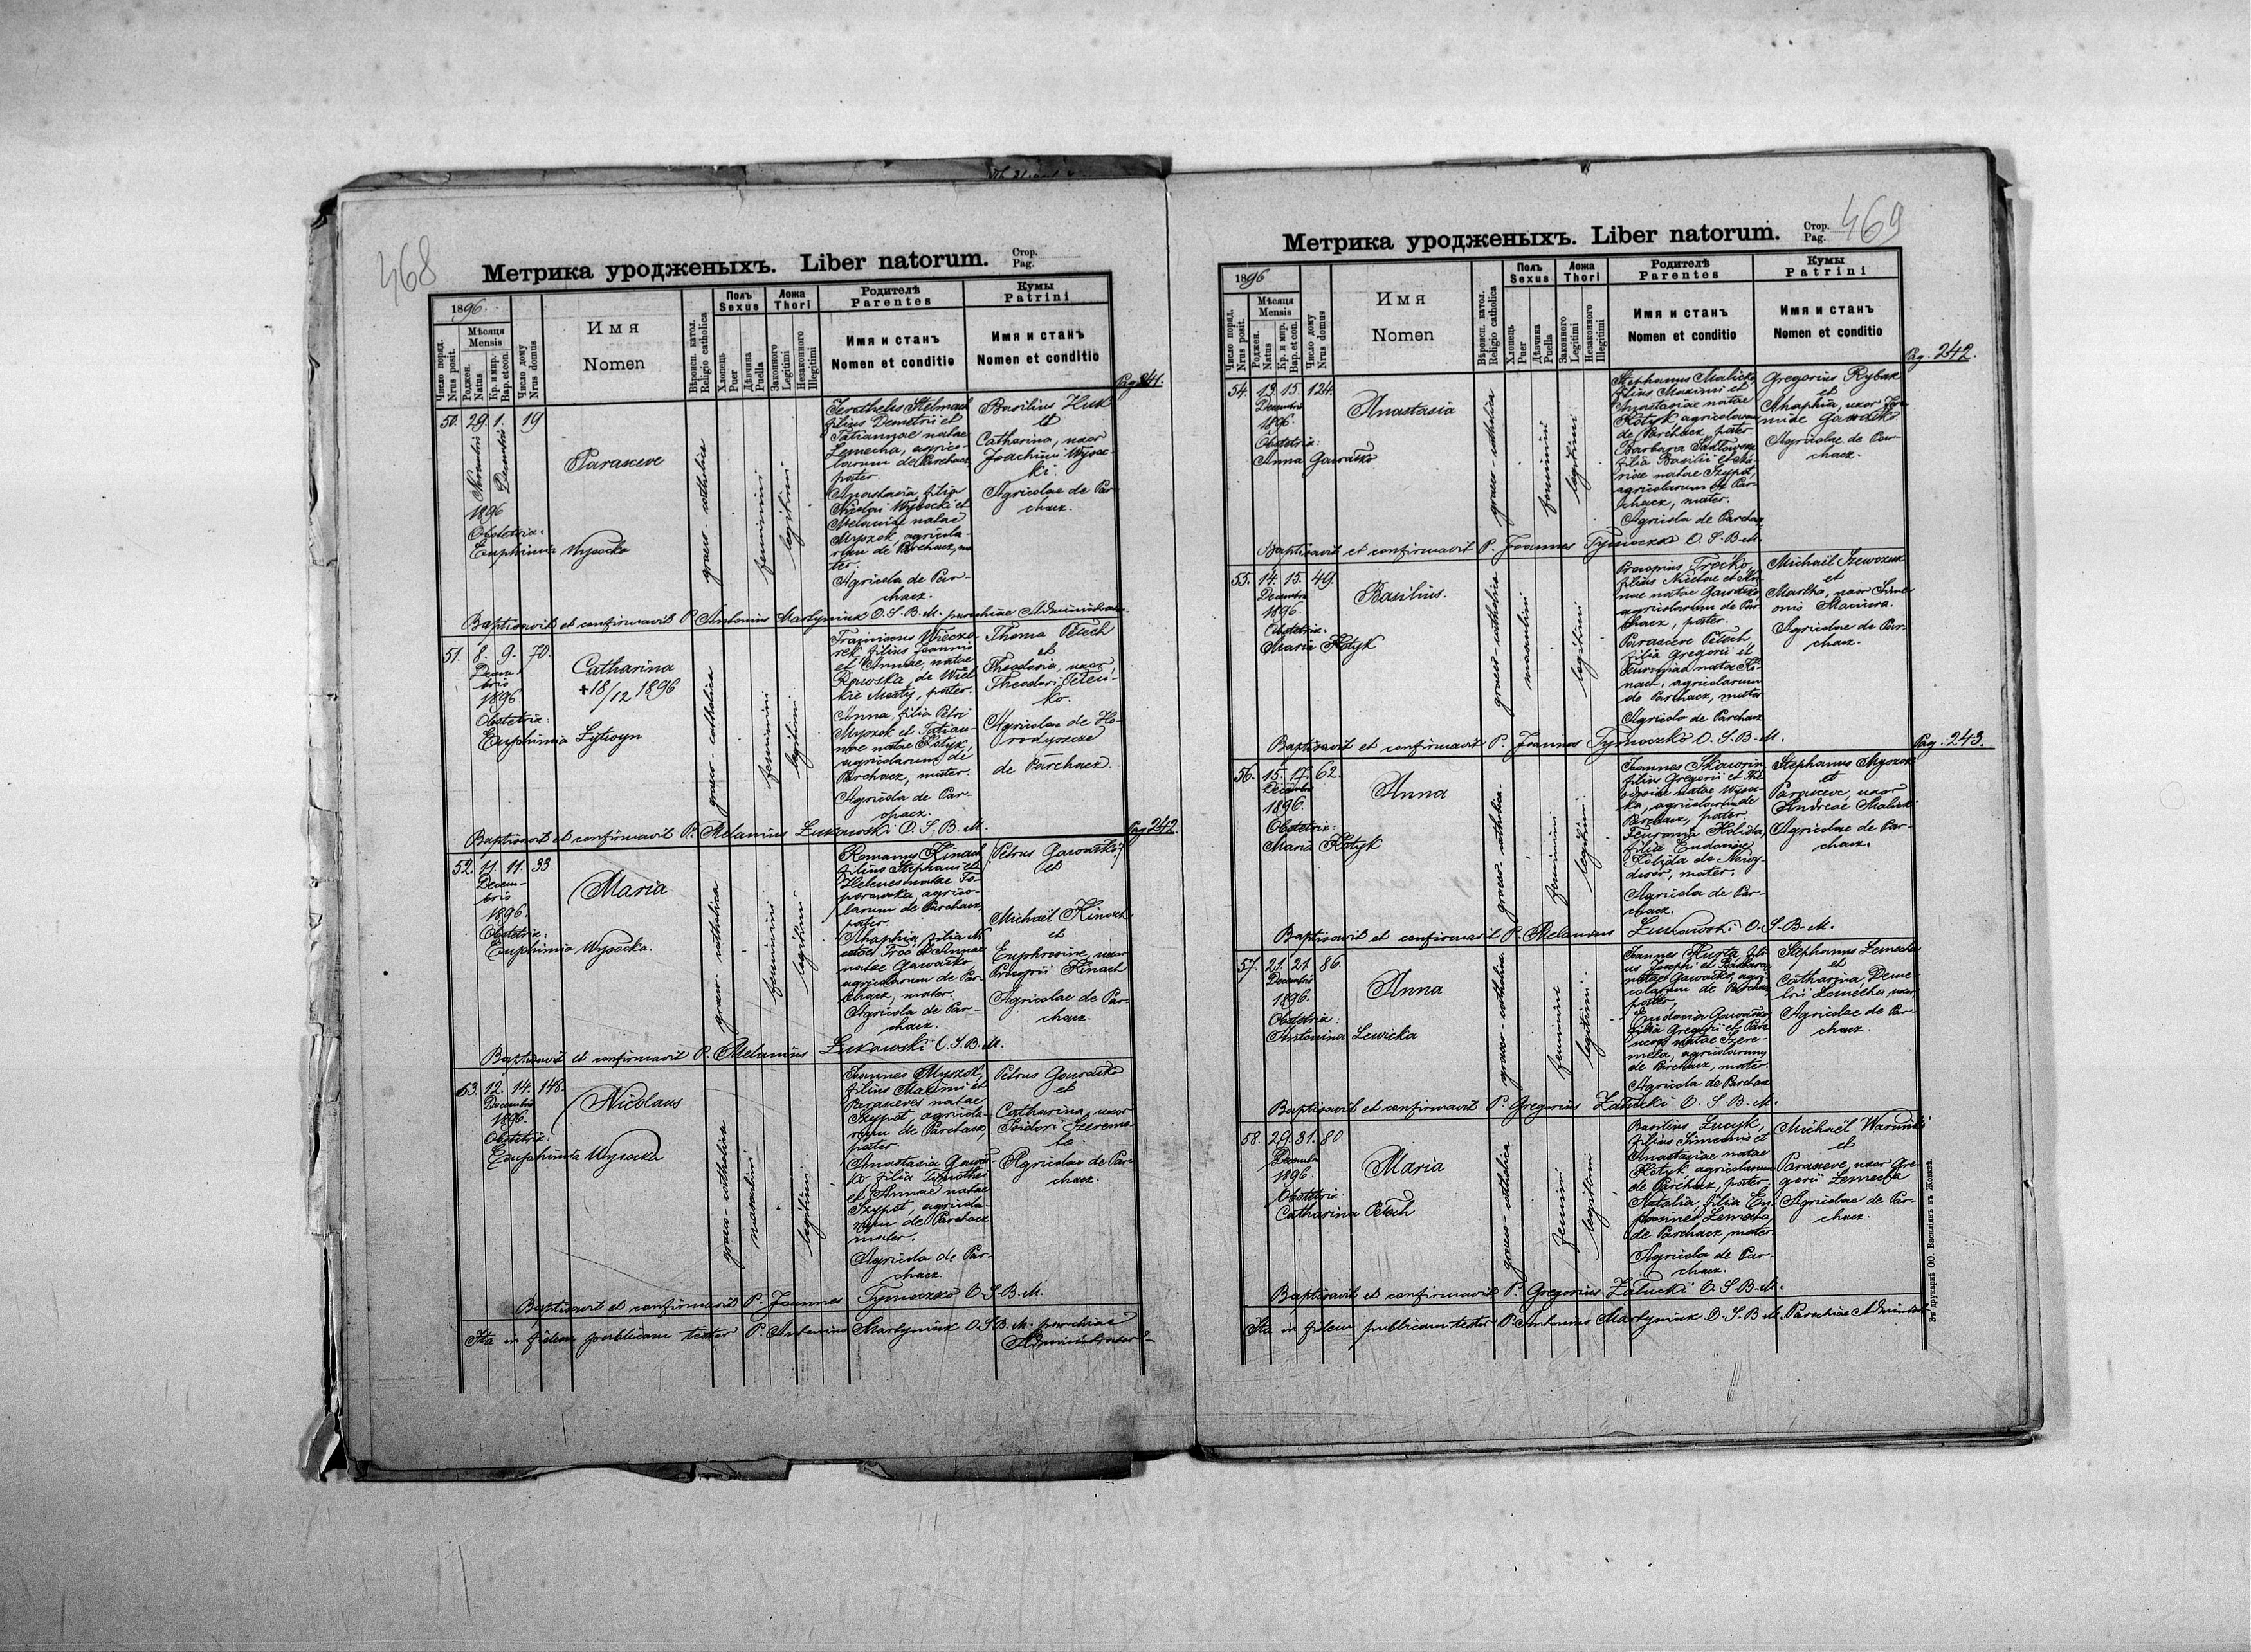 468
Метрика уродженыхъ. Liber natorum.
Стор.
Pag.
1896.
Число поряд.
Nrus posit.
Мѣсяця
Mensis
Роджен.
Natus
Кр. и мир.
Bap. et con.
Число дому
Nrus domus
Имя
Nomen
Вѣроисп. катол.
Religio catholica
Полъ
Sexus
Хлопець
Puer
Дѣвчина
Puella
Ложа
Thori
Законного
Legitimi
Незаконного
Illegitimi
Родителѣ
Parentes
Имя и станъ
Nomen et conditio
Кумы
Patrini
Имя и станъ
Nomen et conditio
Pag. 241.
50. 29. 1. 19
Novembris Decembris
1896
Obstetrix:
Euphimia Wysocka
Parasceve
graeco-catholica
feminini
legitimi
Stelmach
filius Demetrii et
Tatiannae natae
Lemecha, agrico-
larum de Parchacz,
pater.
Anastasia, filia
Nicolai Wysocki et
Melaniae natae
Myszok, agricola-
rum de Parchacz, ma-
ter.
Agricola de Par-
chacz.
Basilius Huk
et
Catharina, uxor
Joachimi Wysoc-
ki.
Agricolae de Par-
chacz.
Baptisavit et confirmavit P. Antonius Martyniuk O. S. B. M. parochiae Administrator.
51. 8. 9. 70.
Decem-
bris
1896.
Obstetrix:
Euphimia Lytwyn
Catharina
+ 18/12 1896
graeco-catholica
feminini
legitimi
filius Joannis
et Annae, natae
de Wiel-
kie Mosty, pater.
Anna, filia Petri
Myszok et Tatian-
nae natae Kotyk,
agricolarum de
Parchacz, mater.
Agricola de Par-
chacz.
Thoma Petech
et
Theodosia, uxor
Theodori
Agricolae de Ho-
rodyszcze
de Parchacz.
Baptisavit et confirmavit P. Melanius Lukowski O. S. B. M.
Pag. 242
52. 11. 11. 33.
Decem-
bris
1896.
Obstetrix:
Euphimia Wysocka.
Maria
graeco-catholica
feminini
legitimi
Romanus Kinach
filius Stephani et
Helenes natae To-
porowska, agrico-
larum de Parchacz,
pater.
Ahaphia, filia Ni-
cetae Troć et Annae
natae Gawaćko,
agricolarum de Par-
chacz, mater.
Agricola de Par-
chacz.
Petrus Gawaćko
et
Michaël Kinach
et
Euphrosine, uxor
Kinach
Agricolae de Par-
chacz.
Baptisavit et confirmavit P. Melanius Lukowski O. S. B. M.
53. 12. 14. 146.
Decembris
1896.
Obstetrix:
Euphimia Wysocka
Nicolaus
graeco-catholica
masculini
legitimi
Joannes Myszok,
filius Maximi et
Parasceves natae
Szypot, agricola-
rum de Parchacz,
pater.
Anastasia Gawać-
ko, filia Timothei
et Annae natae
Szypot, agricola-
rum de Parchacz
mater.
Agricola de Par-
chacz
Petrus Gawaćko
et
Catharina, uxor
Isidori Szereme-
ta.
Agricolae de Par-
chacz.
Baptisavit et confirmavit P. Joannes Tymoczko O. S. B. M.
Ita in fidem publicam testor P. Antonius Martyniuk O. S. B. M. parochiae
Administrator
469
Метрика уродженыхъ. Liber natorum.
Стор.
Pag.
1896
Число поряд.
Nrus posit.
Мѣсяця
Mensis
Роджен.
Natus
Кр. и мир.
Bap. et con.
Число дому
Nrus domus
Имя
Nomen
Вѣроисп. катол.
Religio catholica
Полъ
Sexus
Хлопець
Puer
Дѣвчина
Puella
Ложа
Thori
Законного
Legitimi
Незаконного
Illegitimi
Родителѣ
Parentes
Имя и станъ
Nomen et conditio
Кумы
Patrini
Имя и станъ
Nomen et conditio
Pag. 242.
54. 13. 15. 124.
Decembris
1896.
Obstetrix:
Anna Gawaćko
Anastasia
graeco-catholica
feminini
legitimi
Stephanus Malicki,
filius Maximi et
Anastasiae natae
Kotyk, agricolarum
de Parchacz, pater
Barbara
filia Basilii et Ma-
riae natae Szypot,
agricolarum de Par-
chacz, mater.
Agricola de Parchacz
Gregorius Rybak
et
Ahaphia, uxor
Gawaćko
Agricolae de Par-
chacz.
Baptisavit et confirmavit P. Joannes Tymoczko O. S. B. M.
55. 14. 15. 49.
Decembris
1896.
Obstetrix:
Maria Kotyk
Basilius.
graeco-catholica
masculini
legitimi
Procopius Troćko,
filius Nicetae et An-
nae natae Gawaćko
agricolarum de Par-
chacz, pater.
Parasceve Petech
filia Gregorii et
natae Ki-
nach, agricolarum
de Parchacz, mater
Agricola de Parchacz
Michaël Szewczuk
et
Martha, uxor Sime-
onis Maciura.
Agricolae de Par-
chacz.
Baptisavit et confirmavit P. Joannes Tymoczko O. S. B. M.
Pag. 243.
56. 15. 17. 62.
Decembris
1896.
Obstetrix:
Maria Kotyk
Anna
graeco-catholica.
feminini
legitimi
Joannes
filius Gregorii et
natae Wysoc-
ka, agricolarum de
Parchacz, pater.
filia Eudociae
de
mater.
Agricola de Par-
chacz.
Stephanus Myszok
et
Parasceve, uxor
Andreae Malicki
Agricolae de Par-
chacz.
Baptisavit et confirmavit P. Melanius Lukowski O. S. B. M.
57. 21. 21. 86.
Decembris
1896.
Obstetrix:
Antonina Lewicka
Anna
graeco-catholica
feminini
legitimi
Joannes Hurta, fili-
us Josephi et Barbarae
natae Gawaćko, agri-
colarum de Parchacz,
pater,
Eudocia Gawaćko
filia Gregorii et Para-
sceves natae Szere-
meta, agricolarum
de Parchacz, mater.
Agricola de Parchacz
Stephanus Lemecha
et
Catharina, Deme-
trii Lemecha, uxor,
Agricolae de Par-
chacz.
Baptisavit et confirmavit P. Gregorius Załucki O. S. B. M.
58. 29. 31. 80.
Decembris
1896.
Obstetrix:
Catharina Petech
Maria
graeco-catholica
feminini
legitimi
Basilius Lucyk,
filius Simeonis et
Anastasiae natae
Kotyk agricolarum
de Parchacz, pater.
Natalia, filia Eu-
Lemecha,
de Parchacz, mater
Agricola de Par-
chacz.
Michaël
et
Parasceve, uxor Gre-
gorii Lemecha
Agricolae de Par-
chacz.
Baptisavit et confirmavit P. Gregorius Załucki O. S. B. M.
Ita in fidem publicam testor P. Antonius Martyniuk O. S. B. M. Parochiae Administrator
Зъ друкарнѣ ОО. Василіянъ въ Жовквѣ.